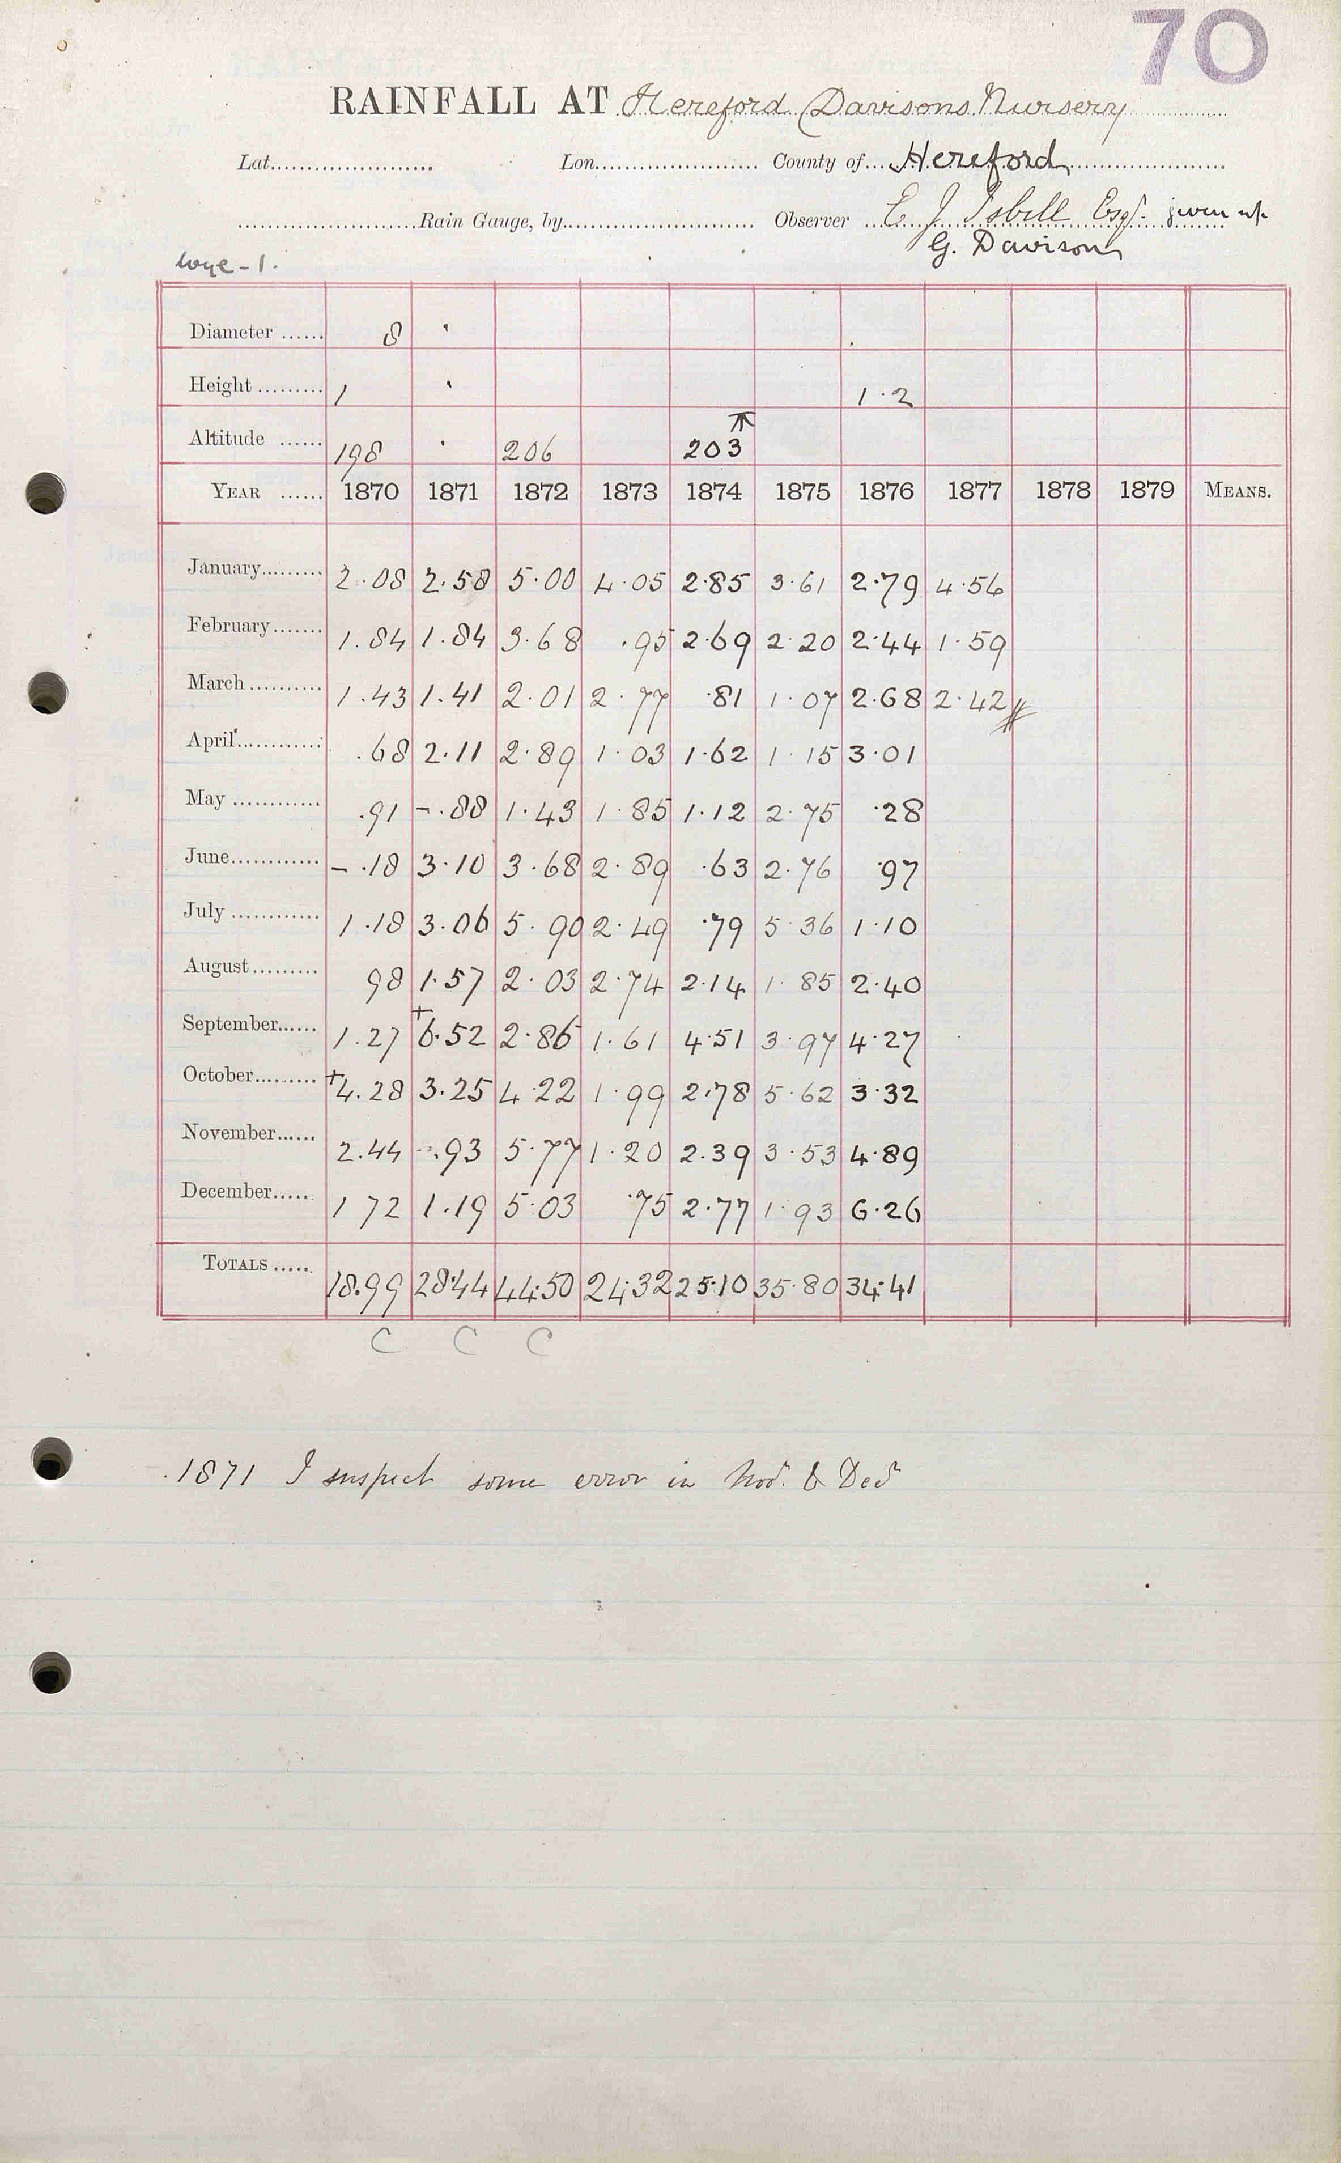 70
RAINFALL AT Hereford (Davisons Nursery
Lat. Lon. County of Hereford
Rain Gauge, by Observer E. J. Isbill Esqr. given up
G. Davison
Wye - 1.
Diameter 8
Height 1 1.2
Altitude 198 206 203
YEAR 1870 1871 1872 1873 1874 1875 1876 1877 1878 1879 MEANS.
January 2.08 2.58 5.00 4.05 2.85 3.61 2.79 4.56
February 1.84 1.84 3.68 .95 2.69 2.20 2.44 1.59
March 1.43 1.41 2.01 2.77 .81 1.07 2.68 2.42
April .68 2.11 2.89 1.03 1.62 1.15 3.01
May .91 -.88 1.43 1.85 1.12 2.75 .28
June -.18 3.10 3.68 2.89 .63 2.76 .97
July 1.18 3.06 5.90 2.49 .79 5.36 1.10
August 98 1.57 2.03 2.74 2.14 1.85 2.40
September 1.27 +6.52 2.86 1.61 4.51 3.97 4.27
October +4.28 3.25 4.22 1.99 2.78 5.62 3.32
November 2.44 -.93 5.77 1.20 2.39 3.53 4.89
December 1 72 1.19 5.03 .75 2.77 1.93 6.26
TOTALS 18.99 28.44 44.50 24.32 25.10 35.80 34.41
C C C
1871 I suspect some error in Nov. & Decr